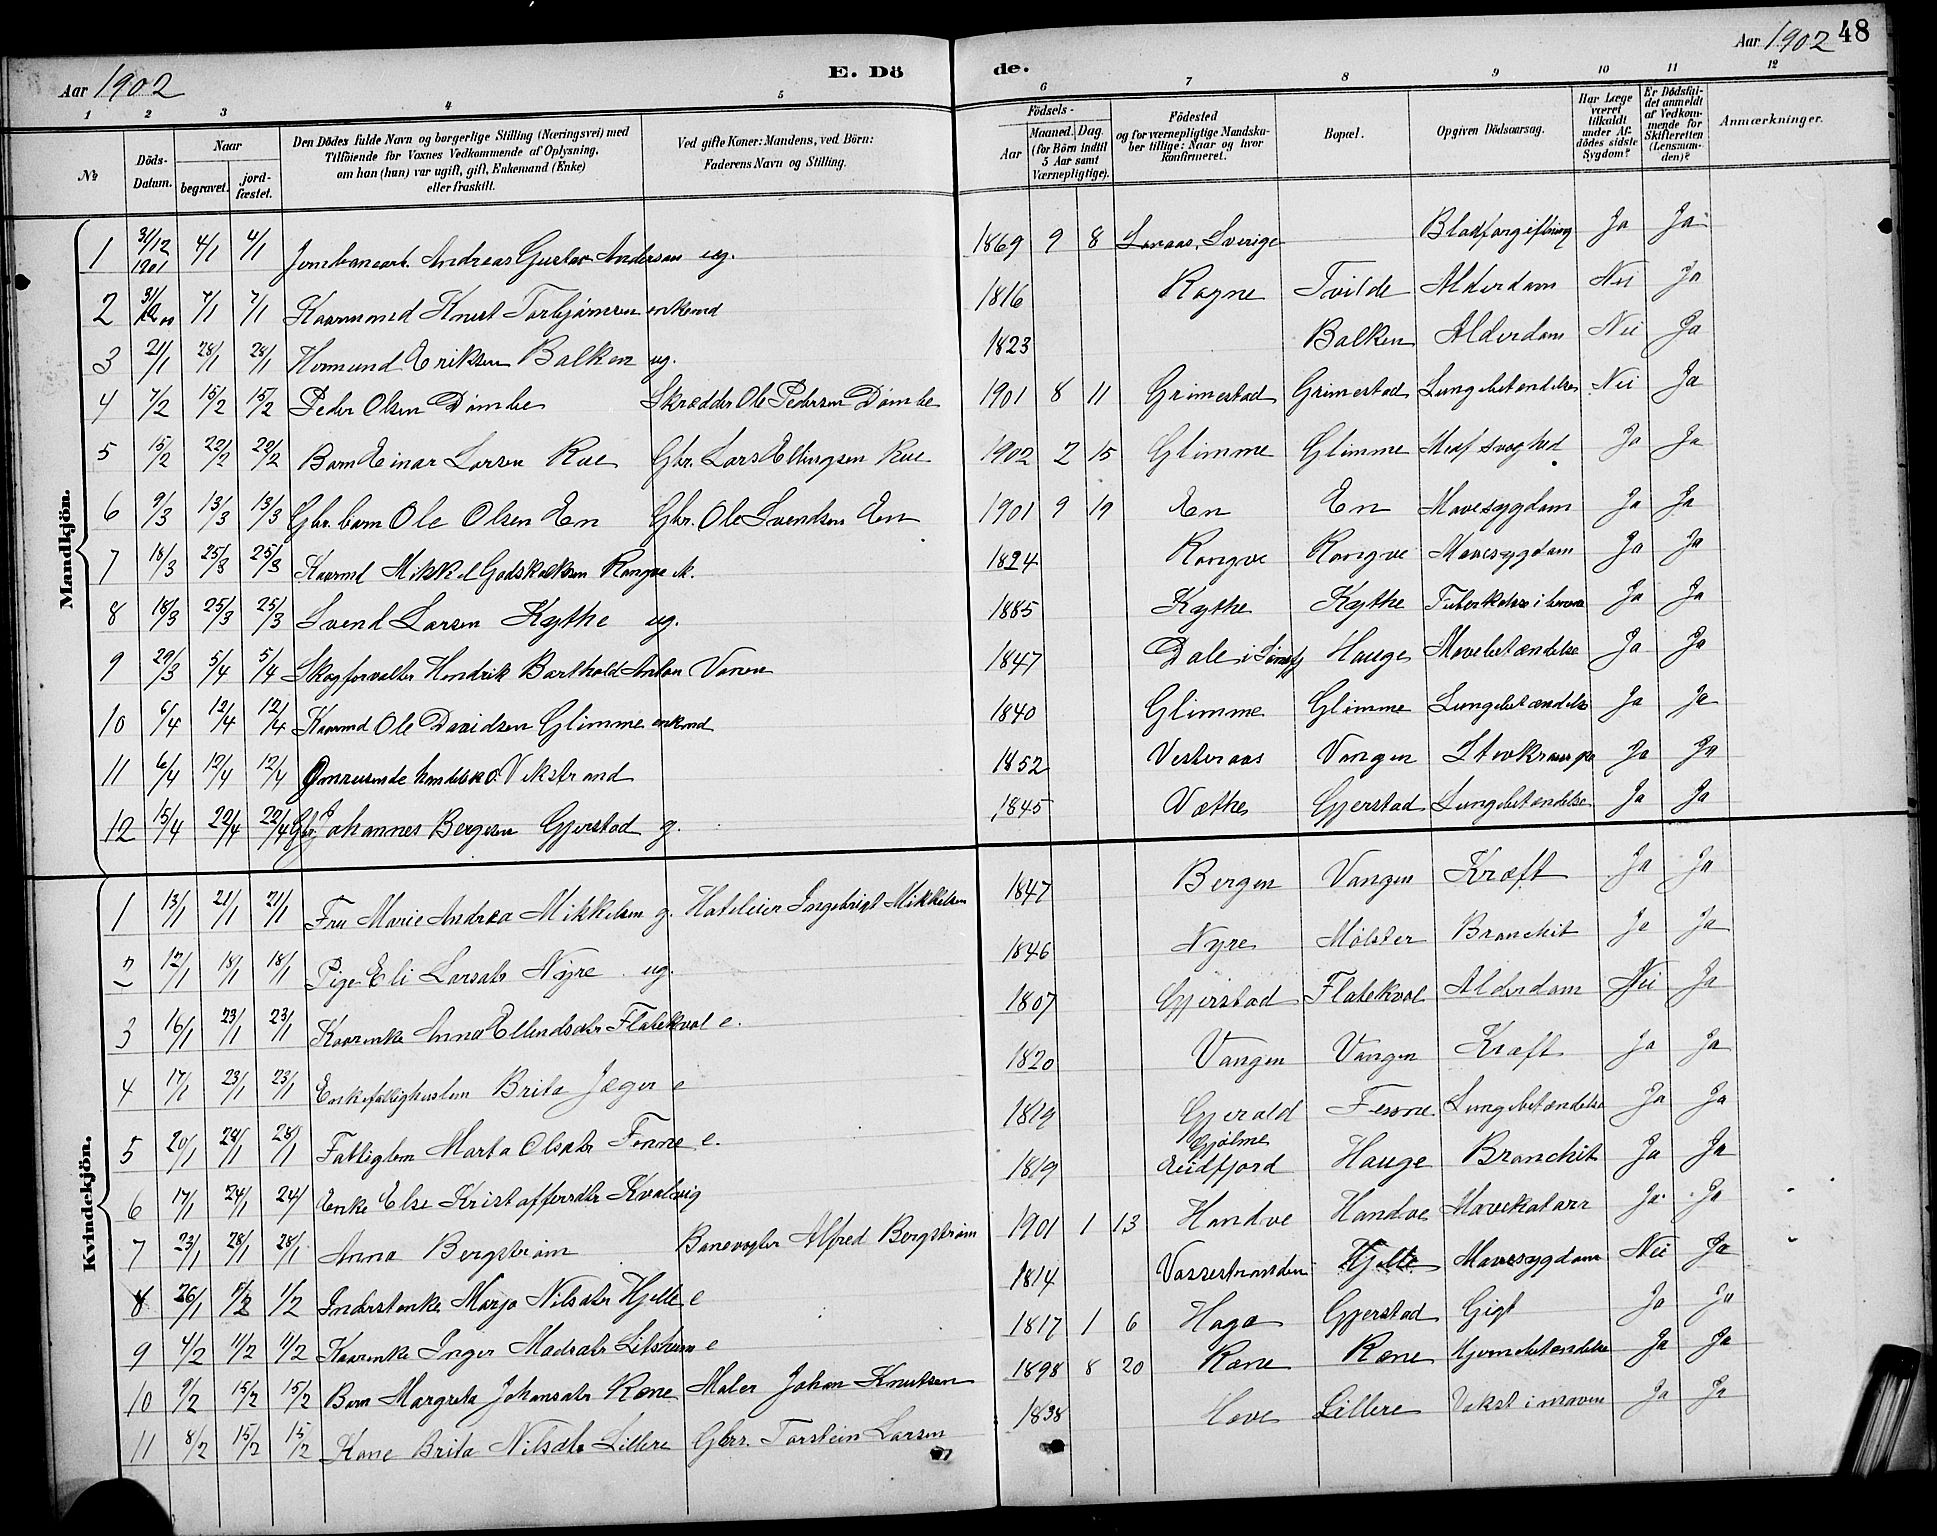 Aar 1902
E. Dö de.
Aar 1902 48
1 2 3 4 5 6 7 8 9 10 11 12
№
Döds-Datum.
Naar
begravet.
jord-fæstet.
Den Dödes fulde Navn og borgerlige Stilling (Næringsvei) med
Tilföiende for Voxnes Vedkommende af Oplysning,
om han (hun) var ugift, gift, Enkemand (Enke)
eller fraskilt.
Ved gifte Koner: Mandens, ved Börn:
Faderens Navn og Stilling.
Födsels-
Aar
Maaned. Dag.
(for Börn indtil
5 Aar samt
Værnepligtige).
Födested
og for værnepligtige Mandska-
ber tillige: Naar og hvor
konfirmeret.
Bopæl.
Opgiven Dödsaarsag.
Har Læge
været
tilkaldt
under Af-
dödes sidste
Sygdom?
Er Dödsfal-
det anmeldt
af Vedkom-
mende for
Skifteretten
(Lensman-
den)?
Anmærkninger.
Mandkjön.
1 31/12 1901 4/1 4/1 Jernbanearb. Andreas Gustav Andersen ug. 1869 9 8 Sverige Blodforgiftning Ja Ja
2 31/12 01 7/1 7/1 Kaarmand Knut Torbjørnsen enkemd 1816 Rogne Tvilde Alderdom Nei Ja
3 21/1 28/1 28/1 Hermund Eriksen Balken ug. 1823 Balken Alderdom Nei Ja
4 7/2 15/2 15/2 Peder Olsen Dømbe Skrædder Ole Pedersen Dømbe 1901 8 11 Grimestad Grimestad Lungebetændelse Nei Ja
5 15/2 22/2 22/2 Barn Einar Larsen Rae Gbr. Lars Ellingsen Rae 1902 2 15 Glimme Glimme Medf svaghed Ja Ja
6 9/3 13/3 13/3 Gbr. barn Ole Olsen En Gbr. Ole Svendsen En 1901 9 19 En En Mavesygdom Ja Ja
7 18/3 25/3 25/3 Kaarmd Mikkel Godskalksen Rongve e. 1824 Rongve Rongve Mavesygdom Ja Ja
8 18/3 25/3 25/3 Svend Larsen Kythe ug. 1885 Kythe Kythe Tuberkelose i Ja Ja
9 29/3 5/4 5/4 Skogforvalter Hendrik Barthold Anton Vonen 1847 Dale i Søndfj Hauge Mavebetændelse Ja Ja
10 6/4 12/4 12/4 Kaarmd Ole Davidsen Glimme enkmd 1840 Glimme Glimme Lungebetændelse Ja Ja
11 6/4 12/4 12/4 Omreisende handelsk O. Vikstrand 1852 Vesteraas Vangen Ja Ja
12 15/4 22/4 22/4 Gbr. Johannes Bergesen Gjerstad g. 1845 Væthe Gjerstad Lungebetændelse Ja Ja
Kvindekjön.
1 13/1 21/1 21/1 Fru Marie Andrea Mikkelsen g. Hoteleier Ingebrigt Mikkelsen 1847 Bergen Vangen Kræft Ja Ja
2 12/1 18/1 18/1 Pige Eli Larsdtr Nyre ug. 1846 Nyre Mølster Bronchit Ja Ja
3 16/1 23/1 23/1 Kaarenke Anna Ellendsdtr Flatekval e. 1807 Gjerstad Flatekval Alderdom Nei Ja
4 17/1 23/1 23/1 Enkefattighuslem Brita Jæger e 1820 Vangen Vangen Kræft Ja Ja
5 20/1 28/1 28/1 Fattiglem Marta Olsdtr Fenne e. 1819 Gjerald Fenne Lungebetændelse Ja Ja
6 17/1 24/1 24/1 Enke Else Kristoffersdtr Kvalevig 1819 Gjølme Eidfjord Hauge Bronchit Ja Ja
7 23/1 28/1 28/1 Anna Bergstrøm Banevogter Alfred Bergstrøm 1901 1 13 Handve Handve Mavekatarr Ja Ja
8 26/1 1/2 1/2 Inderstenke Marjo Nilsdtr Hjelle e 1814 Vossestranden Hjelle Mavesygdom Nei Ja
9 4/2 11/2 11/2 Kaarenke Inger Madsdtr Litsheim e 1817 1 6 Haga Gjerstad Gigt Ja Ja
10 9/2 15/2 15/2 Barn Margreta Johansdtr Rene Maler Johan Knutsen 1898 8 20 Rene Rene Hjernebetændelse Ja Ja
11 8/2 15/2 15/2 Kone Brita Nilsdtr Lillere Gbr. Torstein Larsen 1838 Hæve Lillere Vekst i maven Ja Ja